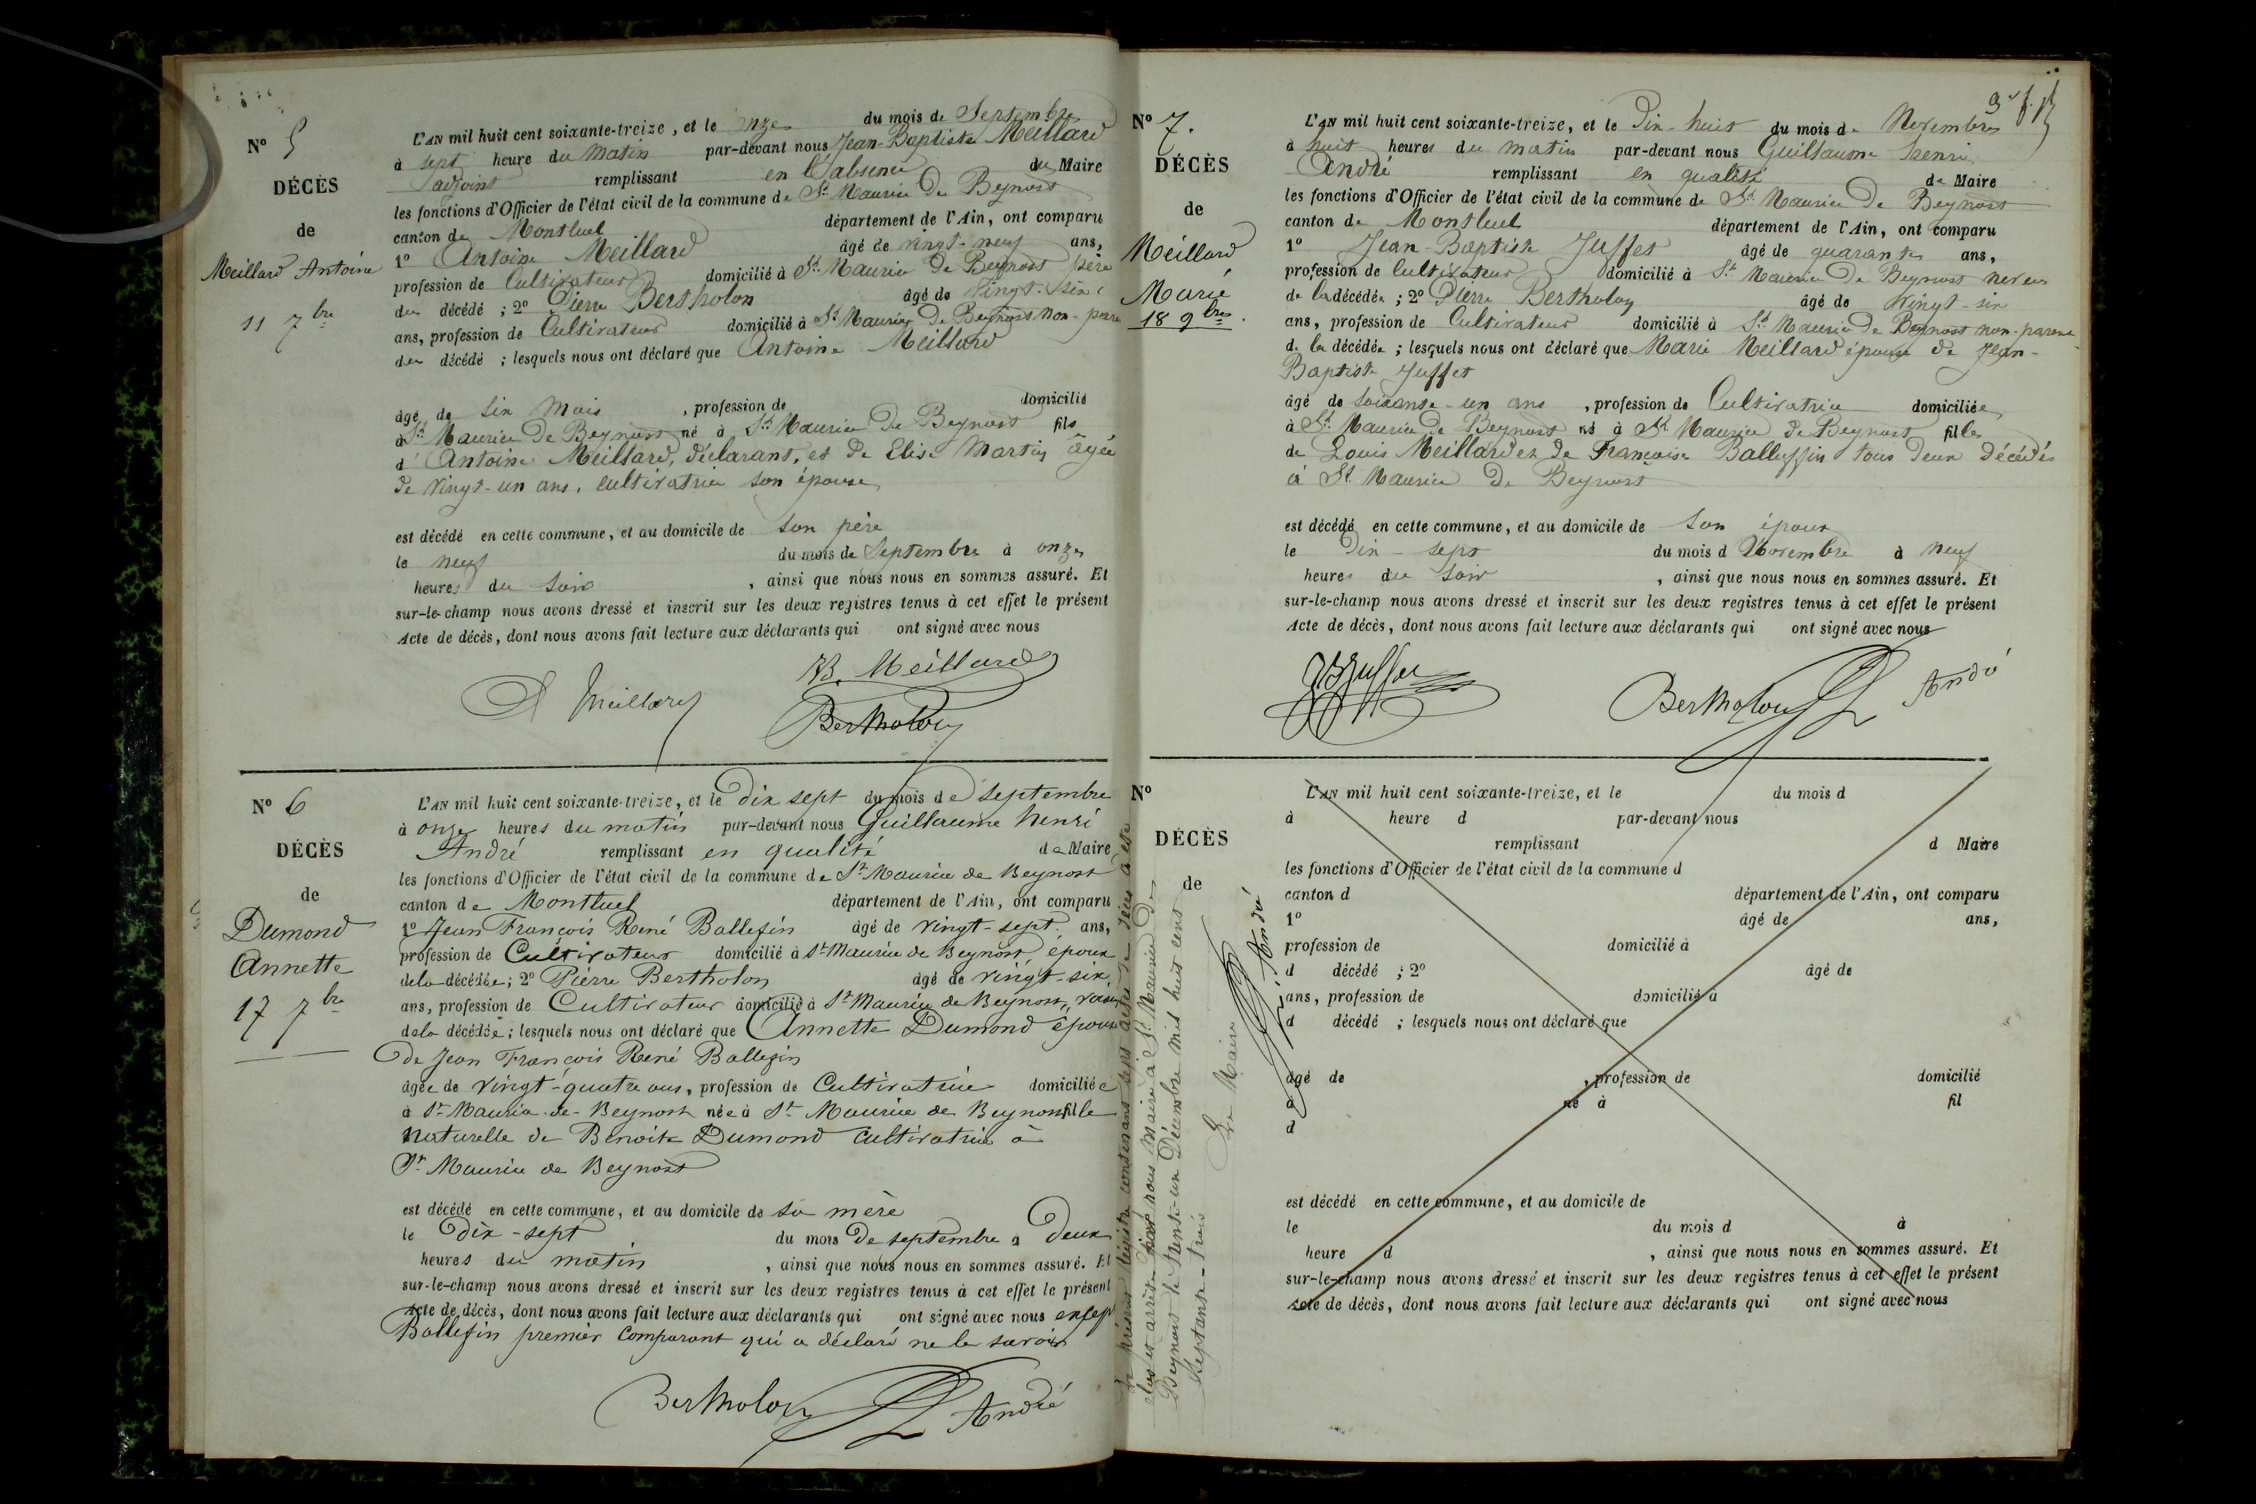 Nº 5
DÉCÈS
de
Meillard Antoine
11 7bre
L'AN mil huit cent soixante-treize, et le onze du mois de Septembre
à sept heure du matin par-devant nous Jean-Baptiste Meillard
adjoint remplissant en l'absence du Maire
les fonctions d'Officier de l'état civil de la commune de St Maurice De Beynost
canton de Montluel département de l'Ain, ont comparu
1º Antoine Meillard âgé de vingt-neuf ans,
profession de Cultivateur domicilié à St Maurice De Beynost père
du décédé ; 2º Pierre Bertholon âgé de vingt-six
ans, profession de Cultivateur domicilié à St Maurice De Beynost non-parent
du décédé ; lesquels nous ont déclaré que Antoine Meillard
âgé de six mois , profession de domicilié
à St Maurice De Beynost né à St Maurice De Beynost fils
d'Antoine Meillard, déclarant, et de Elise Martin âgée
de vingt-un ans, cultivatrice son épouse
est décédé en cette commune, et au domicile de son père
le neuf du mois de Septembre à onze
heures du soir , ainsi que nous nous en sommes assuré. Et
sur-le-champ nous avons dressé et inscrit sur les deux registres tenus à cet effet le présent
Acte de décès, dont nous avons fait lecture aux déclarants qui ont signé avec nous
JB. Meillard
A Meillard
Bertholon
Nº 6
DÉCÈS
de
Dumond
Annette
17 7bre
L'AN mil huit cent soixante-treize, et le dix sept du mois de septembre
à onze heures du matin par-devant nous Guillaume henri
André remplissant en qualité de Maire
les fonctions d'Officier de l'état civil de la commune de St Maurice de Beynost
canton de Montluel département de l'Ain, ont comparu
1º Jean François René Ballefin âgé de vingt-sept ans,
profession de Cultivateur domicilié à St Maurice de Beynost, époux
de la décédée ; 2º Pierre Bertholon âgé de vingt-six
ans, profession de Cultivateur domicilié à St Maurice de Beynost, voisin
de la décédée ; lesquels nous ont déclaré que Annette Dumond épouse
de Jean François René Ballefin
âgée de vingt-quatre ans, profession de Cultivatrice domiciliée
à St Maurice-de-Beynost née à St Maurice de Beynost fille
naturelle de Benoite Dumond cultivatrice à
St Maurice de Beynost
est décédé en cette commune, et au domicile de sa mère
le dix-sept du mois de septembre à Deux
heures du matin , ainsi que nous nous en sommes assuré. Et
sur-le-champ nous avons dressé et inscrit sur les deux registres tenus à cet effet le présent
Acte de décès, dont nous avons fait lecture aux déclarants qui ont signé avec nous excepté
Ballefin premier comparant qui a déclaré ne le savoir
Bertholon André
Nº 7.
DÉCÈS
de
Meillard
Marie
18 9bre
L'AN mil huit cent soixante-treize, et le Dix-huit du mois de Novembre
à huit heures du matin par-devant nous Guillaume henri
André remplissant en qualité de Maire
les fonctions d'Officier de l'état civil de la commune de St Maurice De Beynost
canton de Montluel département de l'Ain, ont comparu
1º Jean-Baptiste Juffet âgé de quarante ans,
profession de Cultivateur domicilié à St Maurice De Beynost neveu
de la décédée ; 2º Pierre Bertholon âgé de vingt-six
ans, profession de Cultivateur domicilié à St Maurice De Beynost non-parent
de la décédée ; lesquels nous ont déclaré que Marie Meillard épouse de Jean-
Baptiste Juffet
âgé de soixante-un ans , profession de Cultivatrice domiciliée
à St Maurice De Beynost né à St Maurice De Beynost fille
de Louis Meillard et de Françoise Balleffin tous deux décédés
à St Maurice De Beynost
est décédé en cette commune, et au domicile de son époux
le Dix-sept du mois d Novembre à neuf
heures du soir , ainsi que nous nous en sommes assuré. Et
sur-le-champ nous avons dressé et inscrit sur les deux registres tenus à cet effet le présent
Acte de décès, dont nous avons fait lecture aux déclarants qui ont signé avec nous
JBJuffet
Bertholon André
Le présent registre contenant sept actes de décès a été
clos et arrêté par nous Maire à St Maurice De
Beynost le trente-un Décembre mil huit cent
Septante-trois
Le Maire
André
Nº
DÉCÈS
de
L'AN mil huit cent soixante-treize, et le du mois d
à heure d par-devant nous
remplissant d Maire
les fonctions d'Officier de l'état civil de la commune d
canton d département de l'Ain, ont comparu
1º âgé de ans,
profession de domicilié à
d décédé ; 2º âgé de
ans, profession de domicilié à
d décédé ; lesquels nous ont déclaré que
âgé de , profession de domicilié
à né à fil
d
est décédé en cette commune, et au domicile de
le du mois d à
heure d , ainsi que nous nous en sommes assuré. Et
sur-le-champ nous avons dressé et inscrit sur les deux registres tenus à cet effet le présent
Acte de décès, dont nous avons fait lecture aux déclarants qui ont signé avec nous